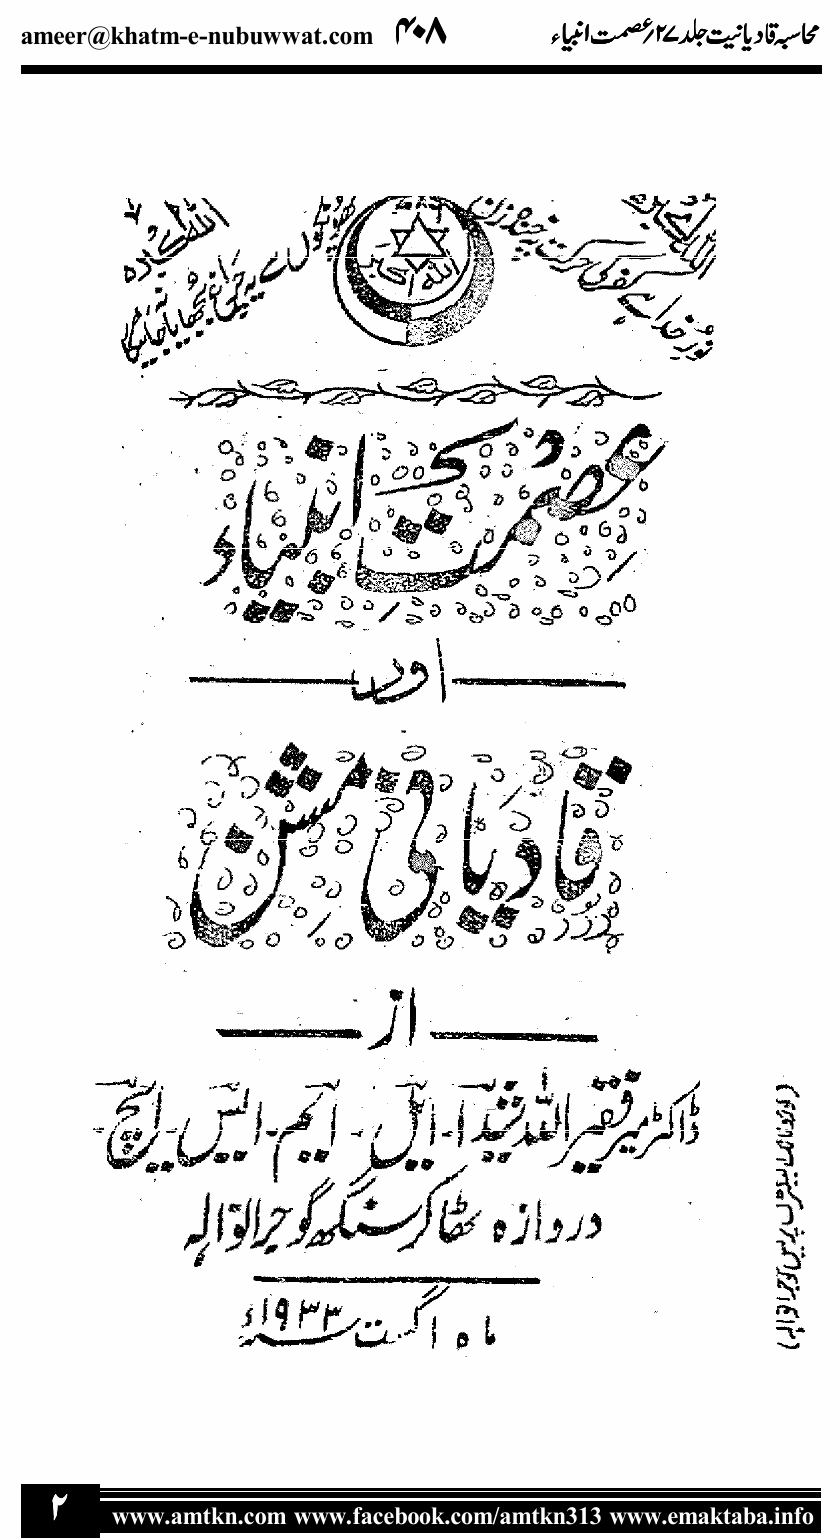 ameer@khatm-e-nubuwwat.com ۴۰۸ محاسبہ قادیانیت جلد ۲۷ / عصمت انبیاء
نورِ خدا ہے کفر کی حرکت پہ خندہ زن
پھونکوں سے یہ چراغ بجھایا نہ جائیگا
اللہ اکبر
عصمت انبیاء
اور
قادیانی مشن
از
ڈاکٹر میر فقیر اللہ ایل - ایم - ایس - ایچ -
دروازہ ٹھاکر سنگھ گوجرانوالہ
ماہ اگست ۱۹۳۳ء
۲
www.amtkn.com www.facebook.com/amtkn313 www.emaktaba.info